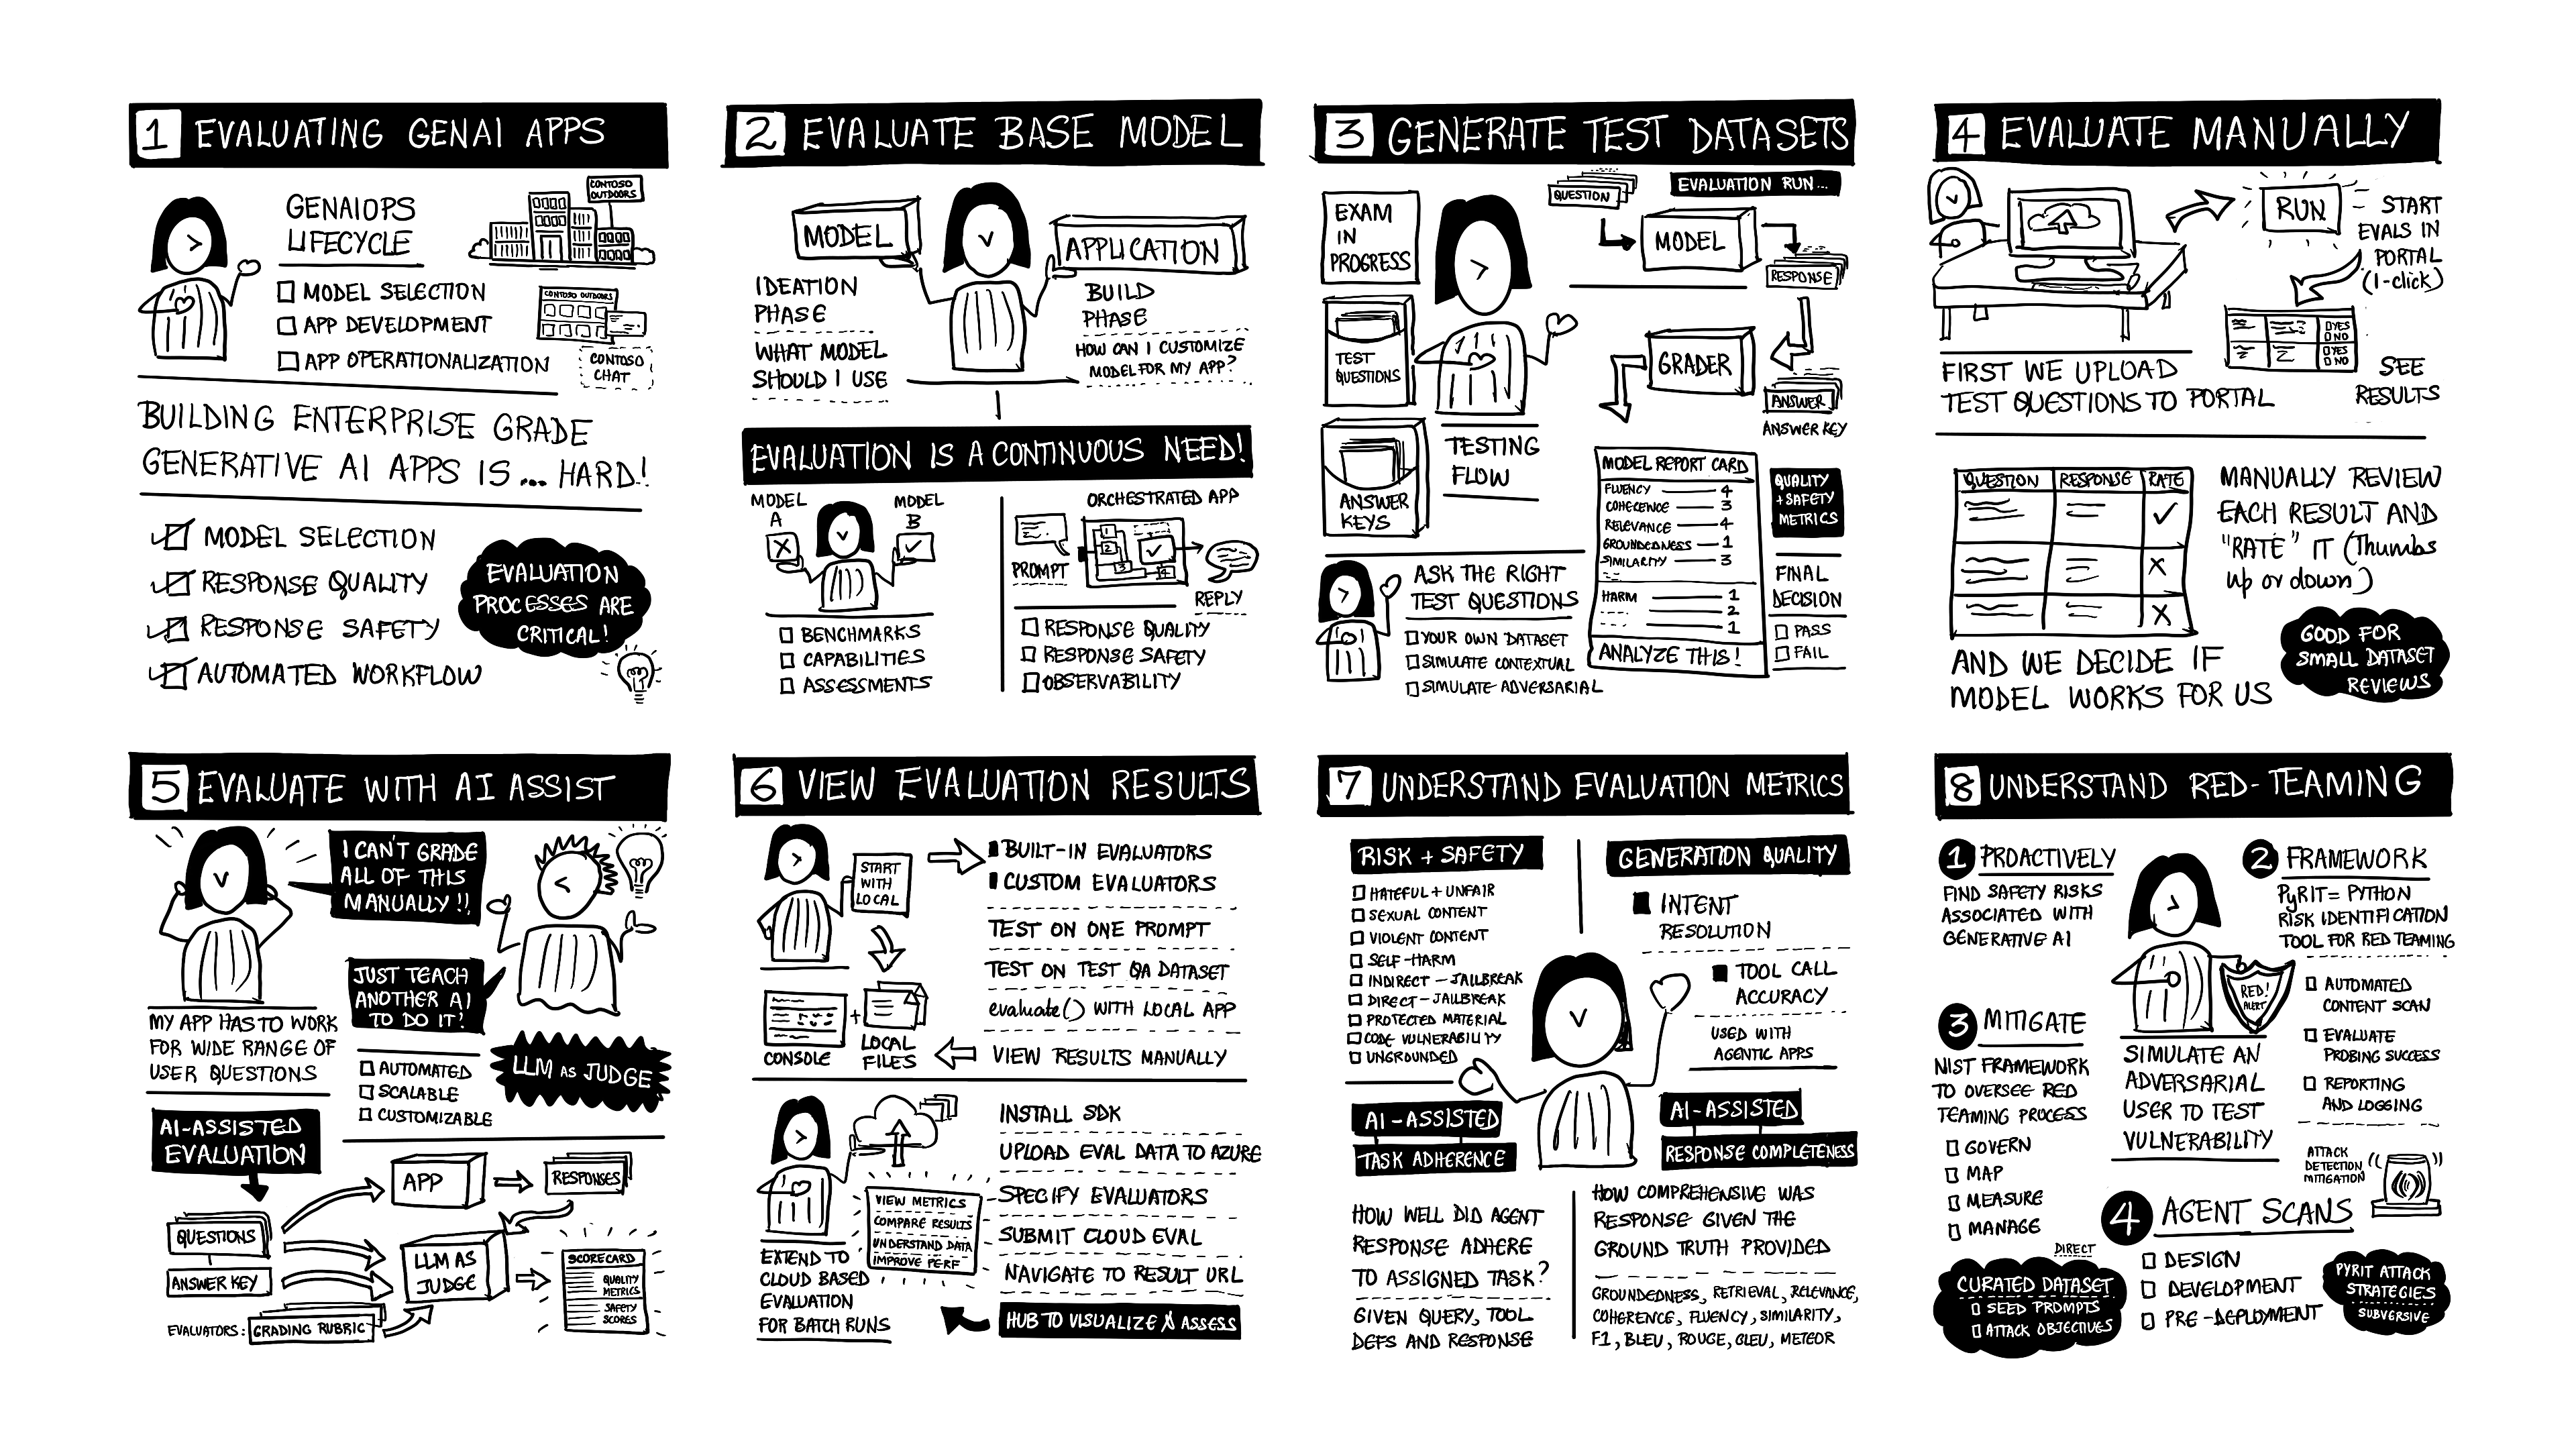 1 EVALUATING GENAI APPS
GENAIOPS
LIFECYCLE
MODEL SELECTION
APP DEVELOPMENT
APP OPERATIONALIZATION
CONTOSO
OUTDOORS
CONTOSO OUTDOORS
CONTOSO
CHAT
BUILDING ENTERPRISE GRADE
GENERATIVE AI APPS IS... HARD!
MODEL SELECTION
RESPONSE QUALITY
RESPONSE SAFETY
AUTOMATED WORKFLOW
EVALUATION
PROCESSES ARE
CRITICAL!
2 EVALUATE BASE MODEL
MODEL
APPLICATION
IDEATION
PHASE
WHAT MODEL
SHOULD I USE
BUILD
PHASE
HOW CAN I CUSTOMIZE
MODEL FOR MY APP?
EVALUATION IS A CONTINUOUS NEED!
MODEL
A
MODEL
B
BENCHMARKS
CAPABILITIES
ASSESSMENTS
ORCHESTRATED APP
PROMPT
1
2
3
4
REPLY
RESPONSE QUALITY
RESPONSE SAFETY
OBSERVABILITY
3 GENERATE TEST DATASETS
EXAM
IN
PROGRESS
TEST
QUESTIONS
ANSWER
KEYS
TESTING
FLOW
QUESTION
EVALUATION RUN...
MODEL
RESPONSE
GRADER
ANSWER
ANSWER KEY
MODEL REPORT CARD
FLUENCY 4
COHERENCE 3
RELEVANCE 4
GROUNDEDNESS 1
SIMILARITY 3
HARM 1
2
1
ANALYZE THIS!
QUALITY
+ SAFETY
METRICS
FINAL
DECISION
PASS
FAIL
ASK THE RIGHT
TEST QUESTIONS
YOUR OWN DATASET
SIMULATE CONTEXTUAL
SIMULATE ADVERSARIAL
4 EVALUATE MANUALLY
RUN
START
EVALS IN
PORTAL
(1-click)
YES
NO
YES
NO
SEE
RESULTS
FIRST WE UPLOAD
TEST QUESTIONS TO PORTAL
QUESTION RESPONSE RATE
MANUALLY REVIEW
EACH RESULT AND
"RATE" IT (Thumbs
up or down)
AND WE DECIDE IF
MODEL WORKS FOR US
GOOD FOR
SMALL DATASET
REVIEWS
5 EVALUATE WITH AI ASSIST
I CAN'T GRADE
ALL OF THIS
MANUALLY!!
JUST TEACH
ANOTHER AI
TO DO IT!
MY APP HAS TO WORK
FOR WIDE RANGE OF
USER QUESTIONS
AUTOMATED
SCALABLE
CUSTOMIZABLE
LLM AS JUDGE
AI-ASSISTED
EVALUATION
QUESTIONS
ANSWER KEY
EVALUATORS: GRADING RUBRIC
APP
RESPONSES
LLM AS
JUDGE
SCORECARD
QUALITY
METRICS
SAFETY
SCORES
6 VIEW EVALUATION RESULTS
START
WITH
LOCAL
BUILT-IN EVALUATORS
CUSTOM EVALUATORS
TEST ON ONE PROMPT
TEST ON TEST QA DATASET
evaluate() WITH LOCAL APP
VIEW RESULTS MANUALLY
CONSOLE
+
LOCAL
FILES
EXTEND TO
CLOUD BASED
EVALUATION
FOR BATCH RUNS
VIEW METRICS
COMPARE RESULTS
UNDERSTAND DATA
IMPROVE PERF
INSTALL SDK
UPLOAD EVAL DATA TO AZURE
SPECIFY EVALUATORS
SUBMIT CLOUD EVAL
NAVIGATE TO RESULT URL
HUB TO VISUALIZE & ASSESS
7 UNDERSTAND EVALUATION METRICS
RISK + SAFETY
HATEFUL + UNFAIR
SEXUAL CONTENT
VIOLENT CONTENT
SELF-HARM
INDIRECT-JAILBREAK
DIRECT-JAILBREAK
PROTECTED MATERIAL
CODE VULNERABILITY
UNGROUNDED
GENERATION QUALITY
INTENT
RESOLUTION
TOOL CALL
ACCURACY
USED WITH
AGENTIC APPS
AI-ASSISTED
TASK ADHERENCE
HOW WELL DID AGENT
RESPONSE ADHERE
TO ASSIGNED TASK?
GIVEN QUERY, TOOL
DEFS AND RESPONSE
AI-ASSISTED
RESPONSE COMPLETENESS
HOW COMPREHENSIVE WAS
RESPONSE GIVEN THE
GROUND TRUTH PROVIDED
GROUNDEDNESS, RETRIEVAL, RELEVANCE,
COHERENCE, FLUENCY, SIMILARITY,
F1, BLEU, ROUGE, GLEU, METEOR
8 UNDERSTAND RED-TEAMING
1 PROACTIVELY
FIND SAFETY RISKS
ASSOCIATED WITH
GENERATIVE AI
2 FRAMEWORK
PyRIT= PYTHON
RISK IDENTIFICATION
TOOL FOR RED TEAMING
AUTOMATED
CONTENT SCAN
EVALUATE
PROBING SUCCESS
REPORTING
AND LOGGING
RED!
ALERT
SIMULATE AN
ADVERSARIAL
USER TO TEST
VULNERABILITY
3 MITIGATE
NIST FRAMEWORK
TO OVERSEE RED
TEAMING PROCESS
GOVERN
MAP
MEASURE
MANAGE
ATTACK
DETECTION
MITIGATION
4 AGENT SCANS
DESIGN
DEVELOPMENT
PRE-DEPLOYMENT
DIRECT
CURATED DATASET
SEED PROMPTS
ATTACK OBJECTIVES
PYRIT ATTACK
STRATEGIES
SUBVERSIVE